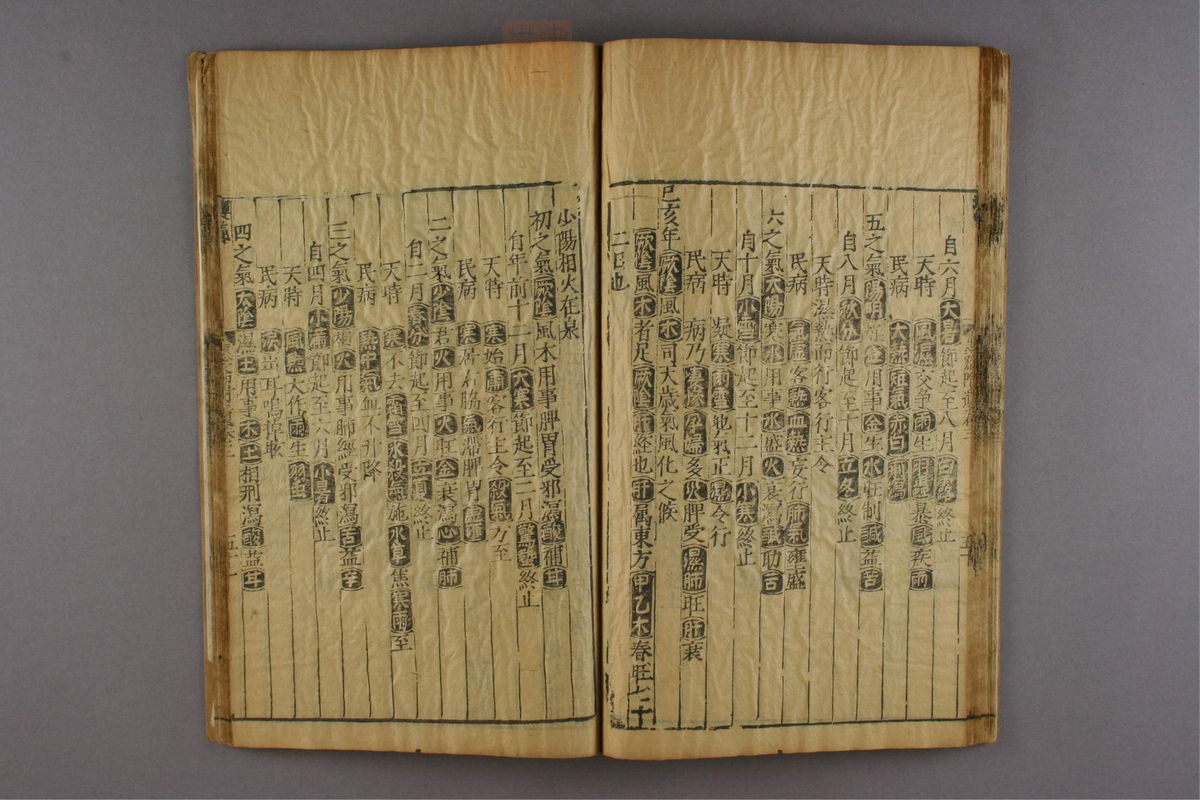 自六月大暑節起至八月白露終止
天時 風濕交爭雨生暴風疾雨
民病 大熱短氣赤白
五之氣陽明用事金生水旺制鹹益苦
自八月秋分節起至十月立冬終止
天時濕熱而行客行主令
民病 氣虛客熱血熱妄行肺氣雍盛
六之氣太陽寒水用事水盛火衰瀉鹹助苦
自十月小雪節起至十二月小寒終止
天時 寒雨雪地氣正濕令行
民病 病乃淒慘孕婦多火脾受濕肺旺肝衰
巳亥年厥陰風木司天歲氣風化之候
厥陰風木者足厥陰肝經也肝属東方甲乙木春旺七十
二日也
少陽相火在泉
初之氣厥陰風木用事脾胃受邪瀉酸補甘
自年前十二月大寒節起至二月驚蟄終止
天時 寒始肅客行主令殺氣方至
民病 寒居右脇氣滯脾胃虛
二之氣少陰君火用事火旺金衰瀉心補肺
自二月春分節起至四月立夏終止
天時 寒不去霜雪水殺氣施水草焦寒雨至
民病 熱中氣血不升降
三之氣少陽相火用事肺經受邪瀉苦益辛
自四月小滿節起至六月小暑終止
天時 風熱大作雨生羽虫
民病 耳鳴掉眩
四之氣太陰濕土用事木土相刑瀉酸益甘